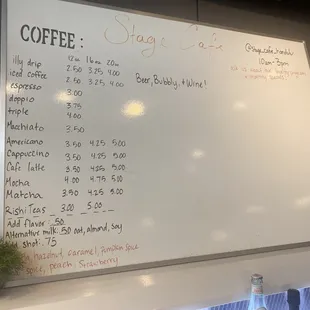 Stage Cafe
COFFEE:
12oz 16oz 20oz
illy drip 2.50 3.25 4.00
iced coffee 2.50 3.25 4.00
espresso 3.00
doppio 3.75
triple 4.00
Macchiato 3.50
Americano 3.50 4.25 5.00
Cappuccino 3.50 4.25 5.00
Cafe latte 3.50 4.25 5.00
Mocha 4.00 4.75 5.00
Matcha 3.50 4.25 5.00
Rishi Teas 3.00 5.00
Add flavor: .50
Alternative milk: .50 oat, almond, soy
Add shot: .75
hazelnut, caramel, pumpkin spice
peach, strawberry
Beer, Bubbly, + Wine!
10am-3pm